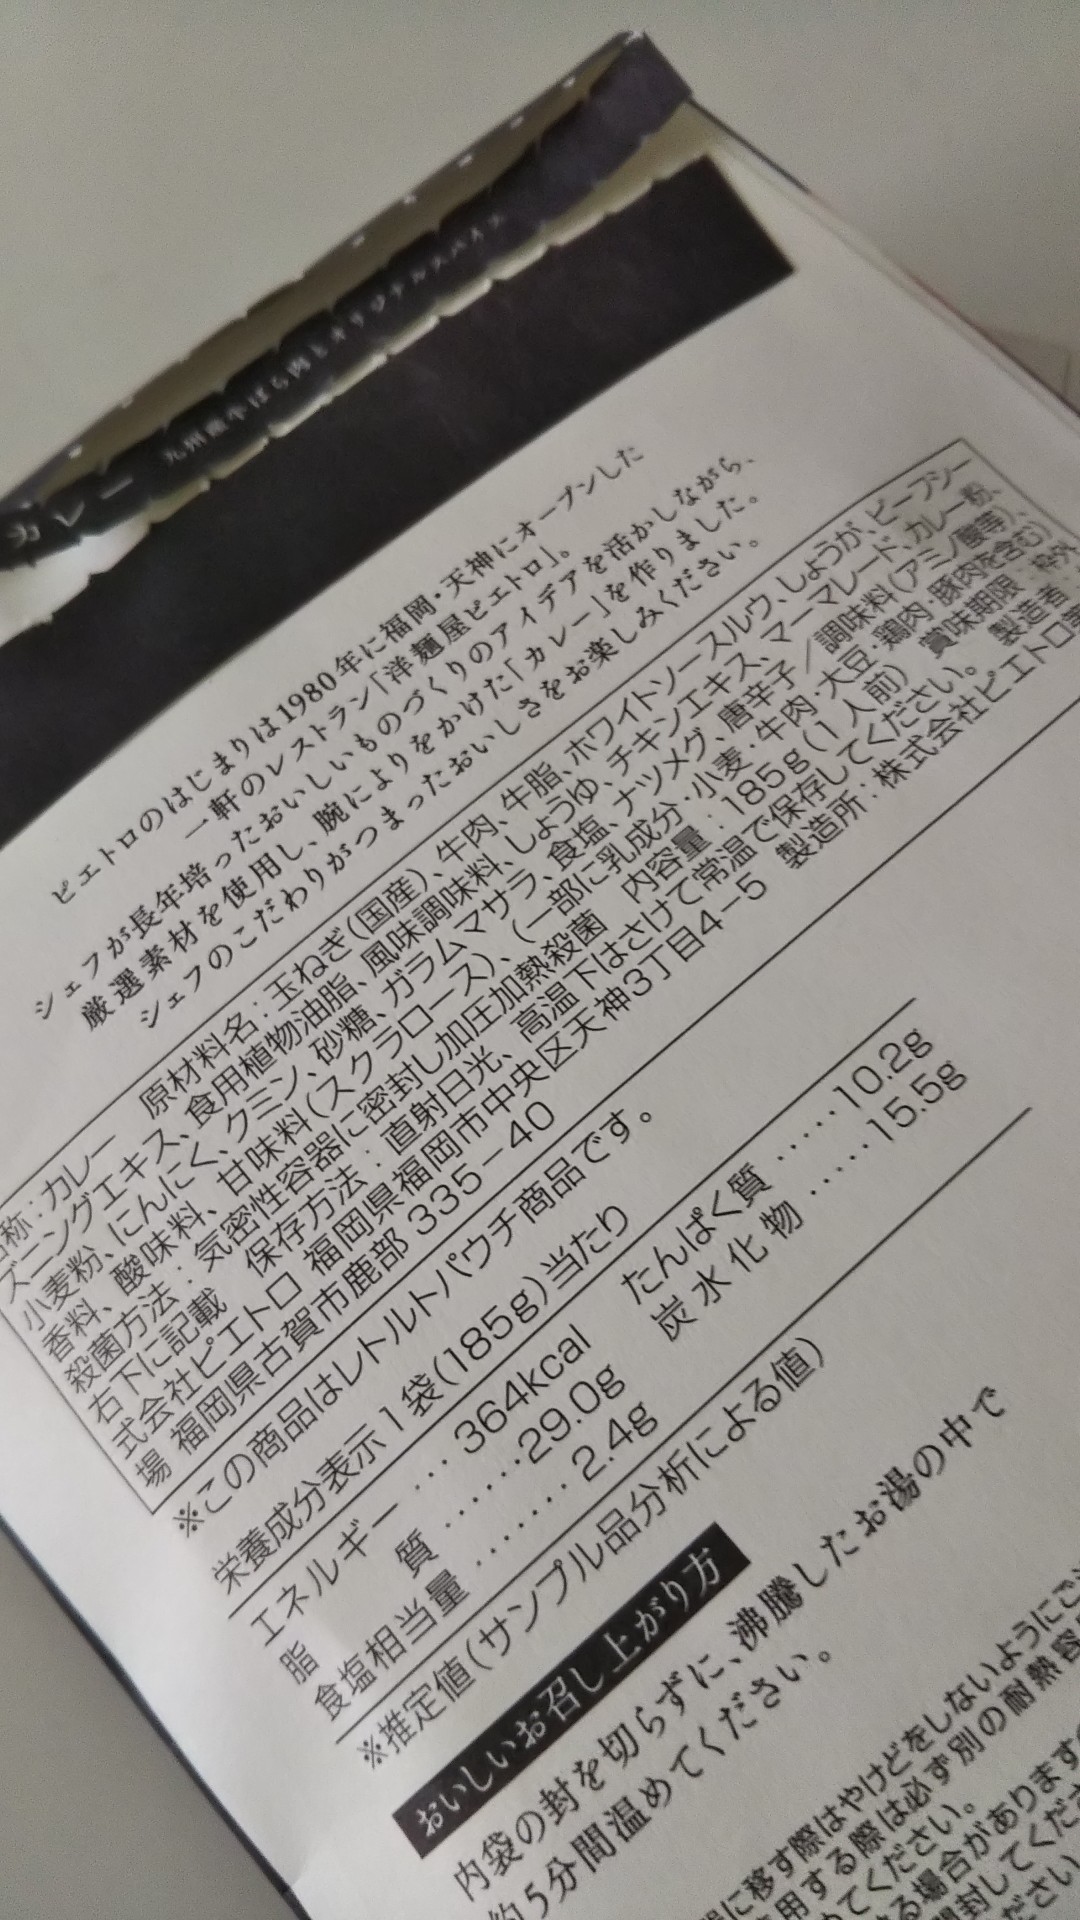 カレー 九州産牛ばら肉とオリジナルスパイス
ピエトロのはじまりは1980年に福岡・天神にオープンした
一軒のレストラン「洋麺屋ピエトロ」。
シェフが長年培ったおいしいものづくりのアイデアを活かしながら、
厳選素材を使用し、腕によりをかけた「カレー」を作りました。
シェフのこだわりがつまったおいしさをお楽しみください。
称：カレー 原材料名：玉ねぎ(国産)、牛肉、牛脂、ホワイトソースルウ、しょうが、ビーフシー
ズニングエキス、食用植物油脂、風味調味料、しょうゆ、チキンエキス、マーマレード、カレー粉、
小麦粉、にんにく、クミン、砂糖、ガラムマサラ、食塩、ナツメグ、唐辛子／調味料(アミノ酸等)、
香料、酸味料、甘味料(スクラロース)、(一部に乳成分・小麦・牛肉・大豆・鶏肉・豚肉を含む)
殺菌方法：気密性容器に密封し加圧加熱殺菌 内容量：185g(1人前) 賞味期限：枠外
右下に記載 保存方法：直射日光、高温下はさけて常温で保存してください。 製造者：
式会社ピエトロ 福岡県福岡市中央区天神3丁目4−5 製造所：株式会社ピエトロ
場 福岡県古賀市鹿部335−40
※この商品はレトルトパウチ商品です。
栄養成分表示1袋(185g)当たり
エネルギー…364kcal たんぱく質……10.2g
脂質……29.0g 炭水化物……15.5g
食塩相当量……2.4g
※推定値(サンプル品分析による値)
おいしいお召し上がり方
内袋の封を切らずに、沸騰したお湯の中で
約5分間温めてください。
に移す際はやけどをしないようにご
用する際は必ず別の耐熱容
てください。
る場合があります
開封してくだ
ださい